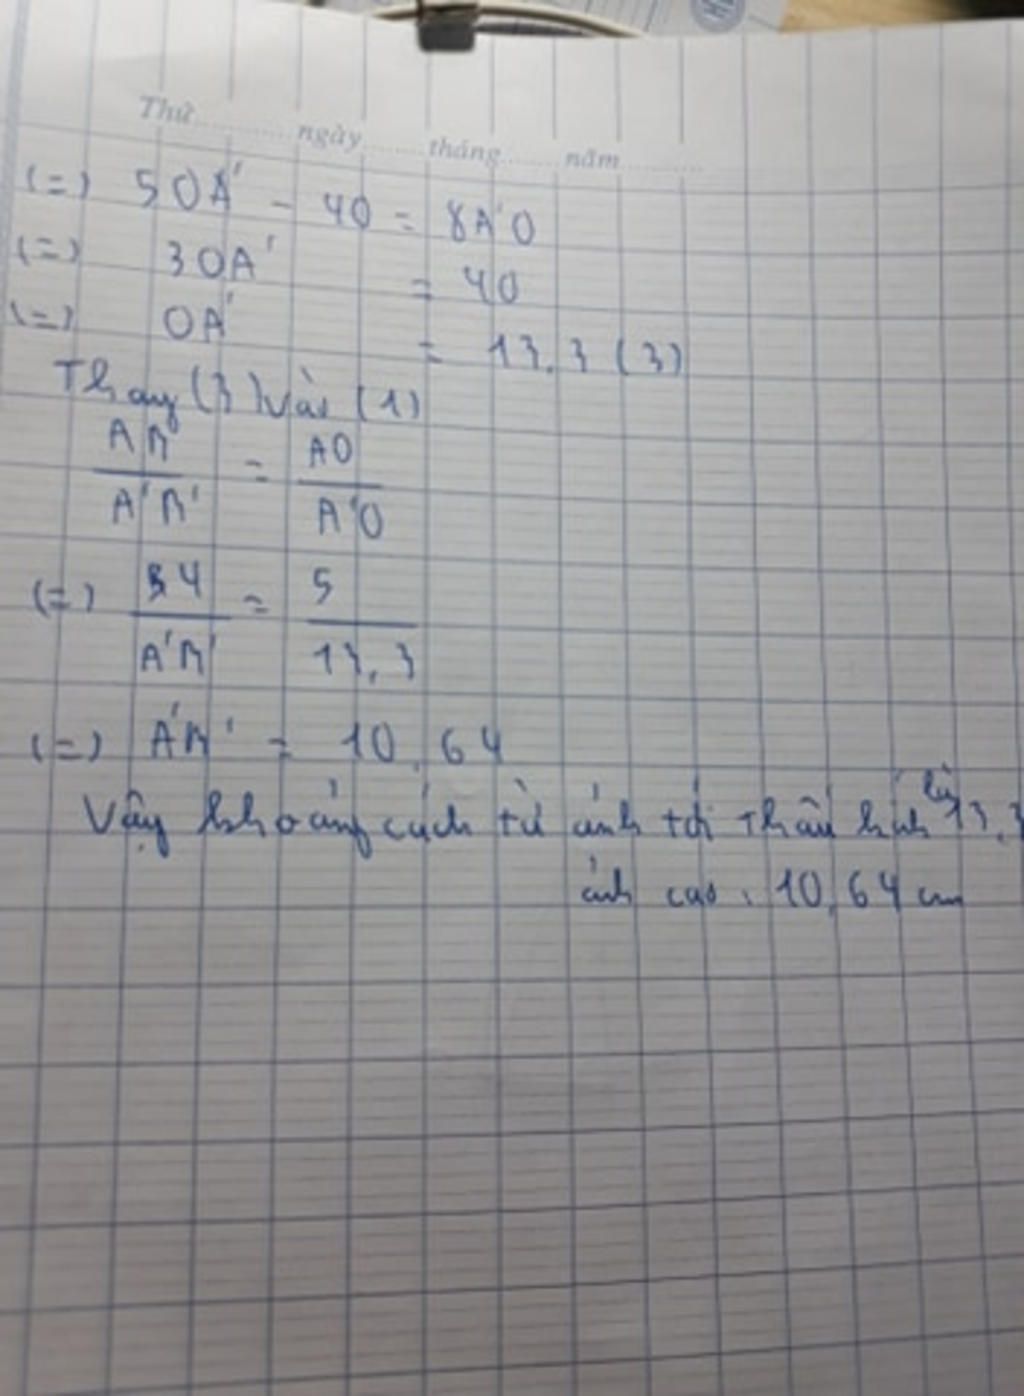 Thứ ngày tháng năm
(=) 5OA' - 40 = 8A'O
(=) 3OA' = 40
(=) OA' = 13,3 (3)
Thay (3) vào (1)
AB/A'B' = AO/A'O
(=) 4/A'B' = 5/13,3
(=) A'B' = 10,64
Vậy khoảng cách từ ảnh tới thấu kính là 13,3
ảnh cao : 10,64 cm